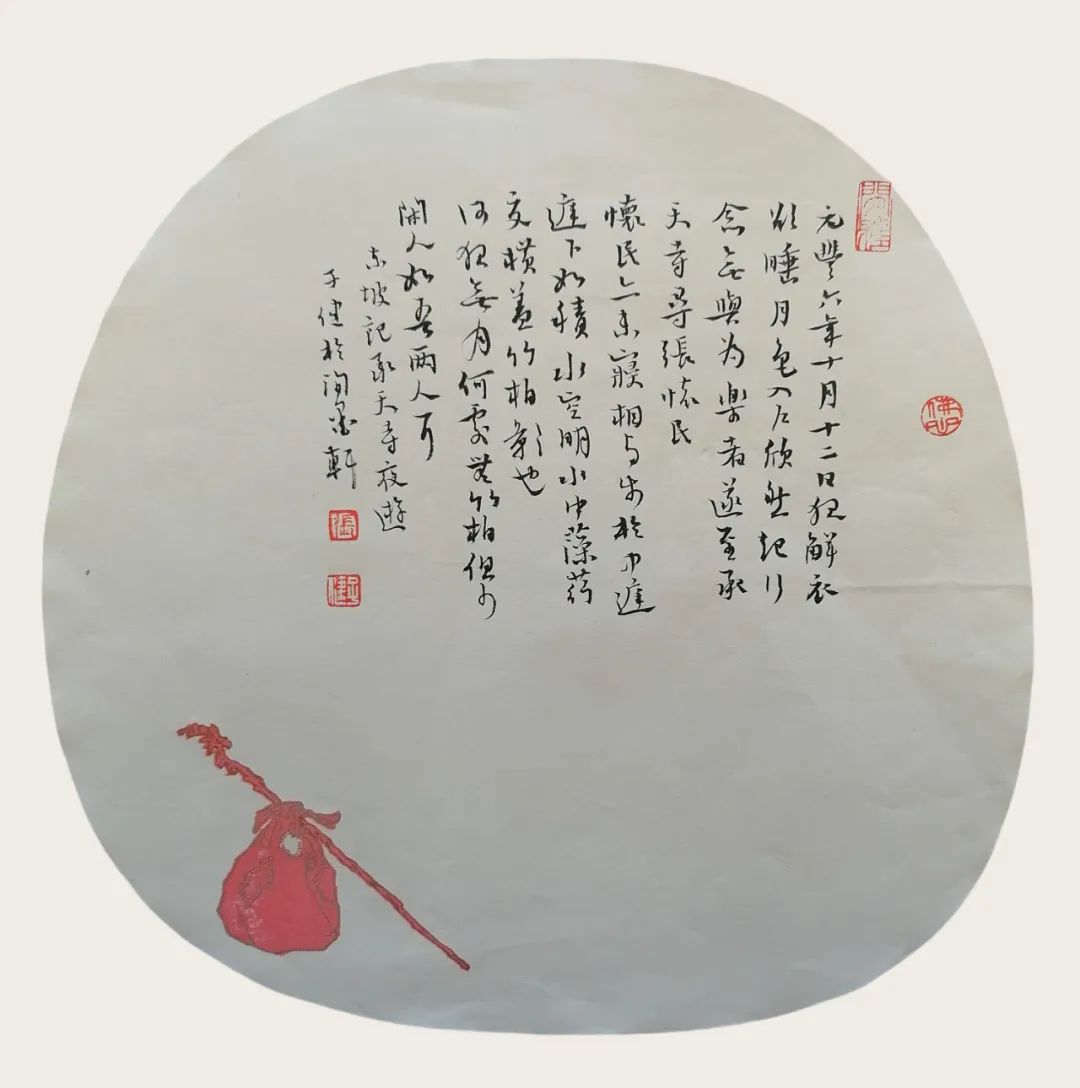 元豐六年十月十二日夜解衣
欲睡月色入户欣然起行
念無與为樂者遂至承
天寺尋張懷民
懷民亦未寢相与步於中庭
庭下如積水空明水中藻荇
交横蓋竹柏影也
何夜無月何處無竹柏但少
閑人如吾兩人耳
东坡記承天寺夜遊
子健於墨軒